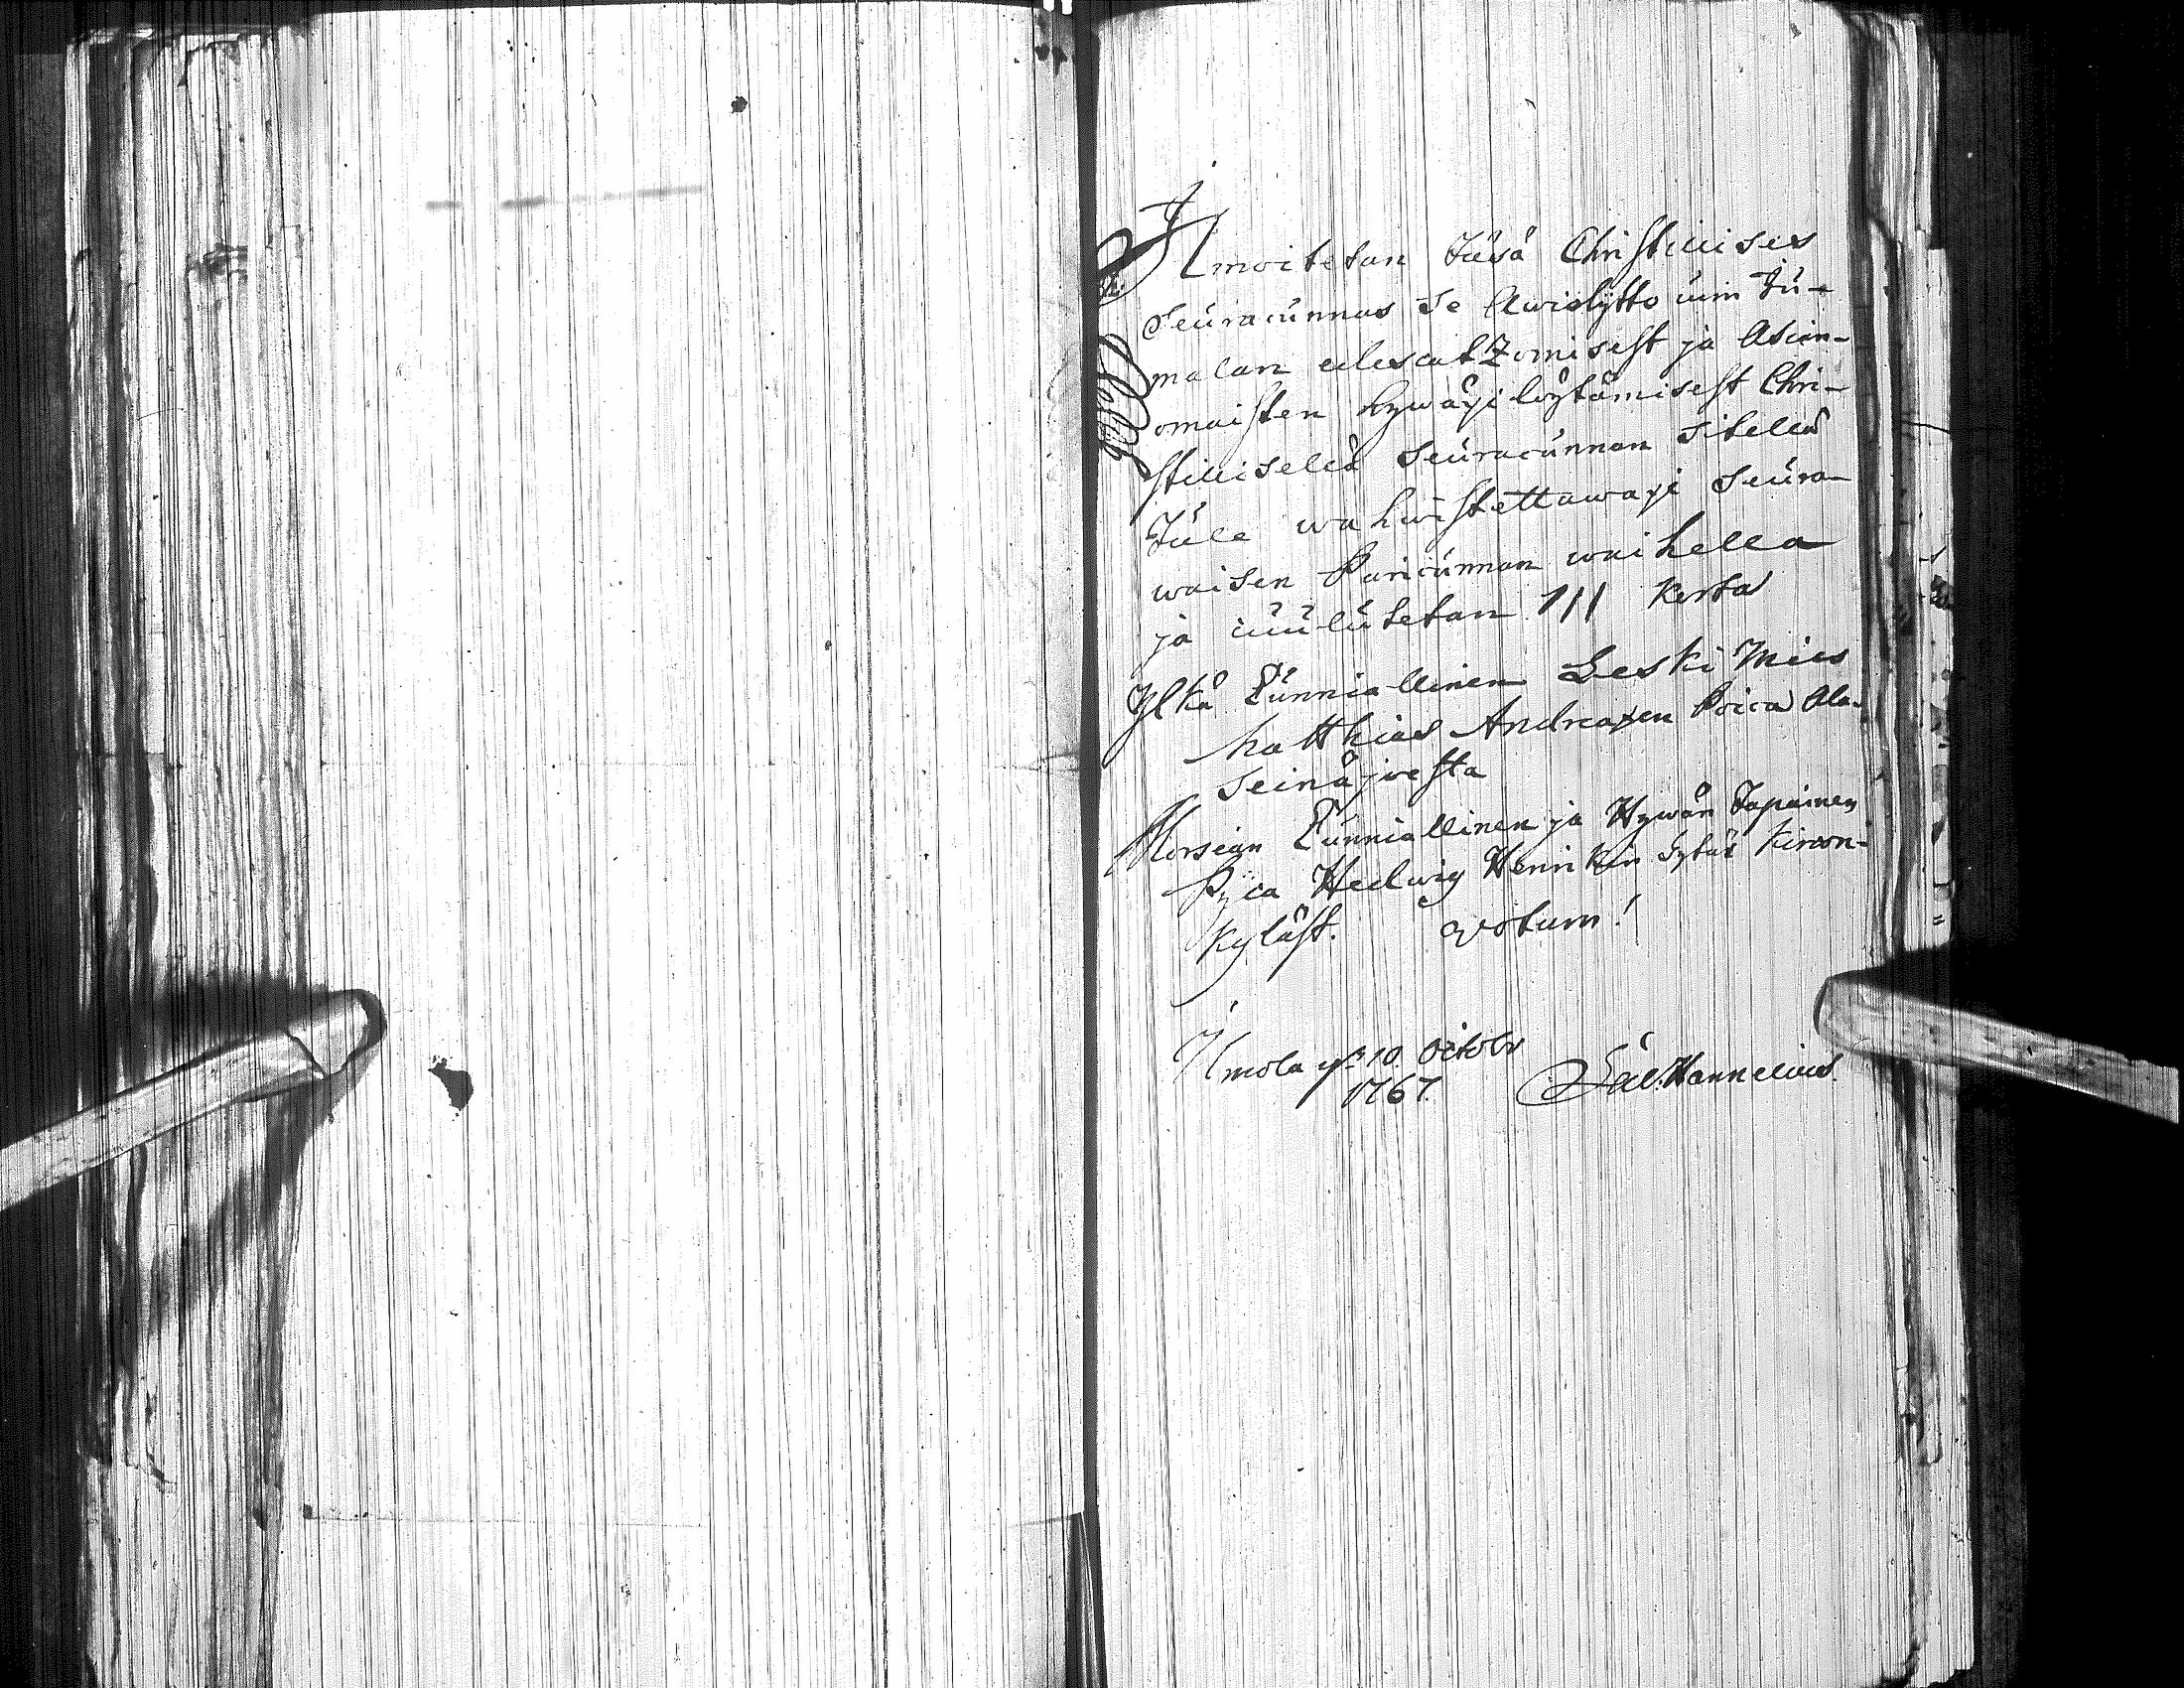 Ilmoitetan täsä Christillises
Seüracünnas se Awiokÿtto cuin Jü-
malan edescatZomisest ja Asian-
omaisten hywäxi löytämisest Chri-
stillisellä Seüracünnan sitellä
Tüle wahwistettawaxi Seüra-
waisen Paricünnan waihella
ja cüülütetan III Kerta
Ylkä Cünniallinen Leski Mies
Matthias Andreaxen Poica Ala-
seinäjoesta
Morsian Cünniallinen ja Hywän Tapainen
Pyca Hedwig Henrikin Tytär Kiwon-
kyläst. Votum!
Ilmola ÿ 10. Octobr
1767. Gab. Hannelius.